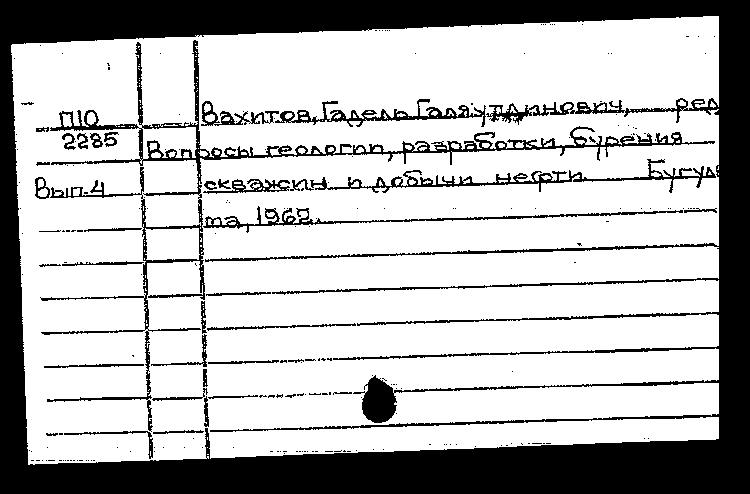 П10 Вахитов, Гадель Галяутдинович, ред
2285 Вопросы геологии, разработки, бурения
Вып.4 скважин и добычи нефти Бугуль
ма, 1962.